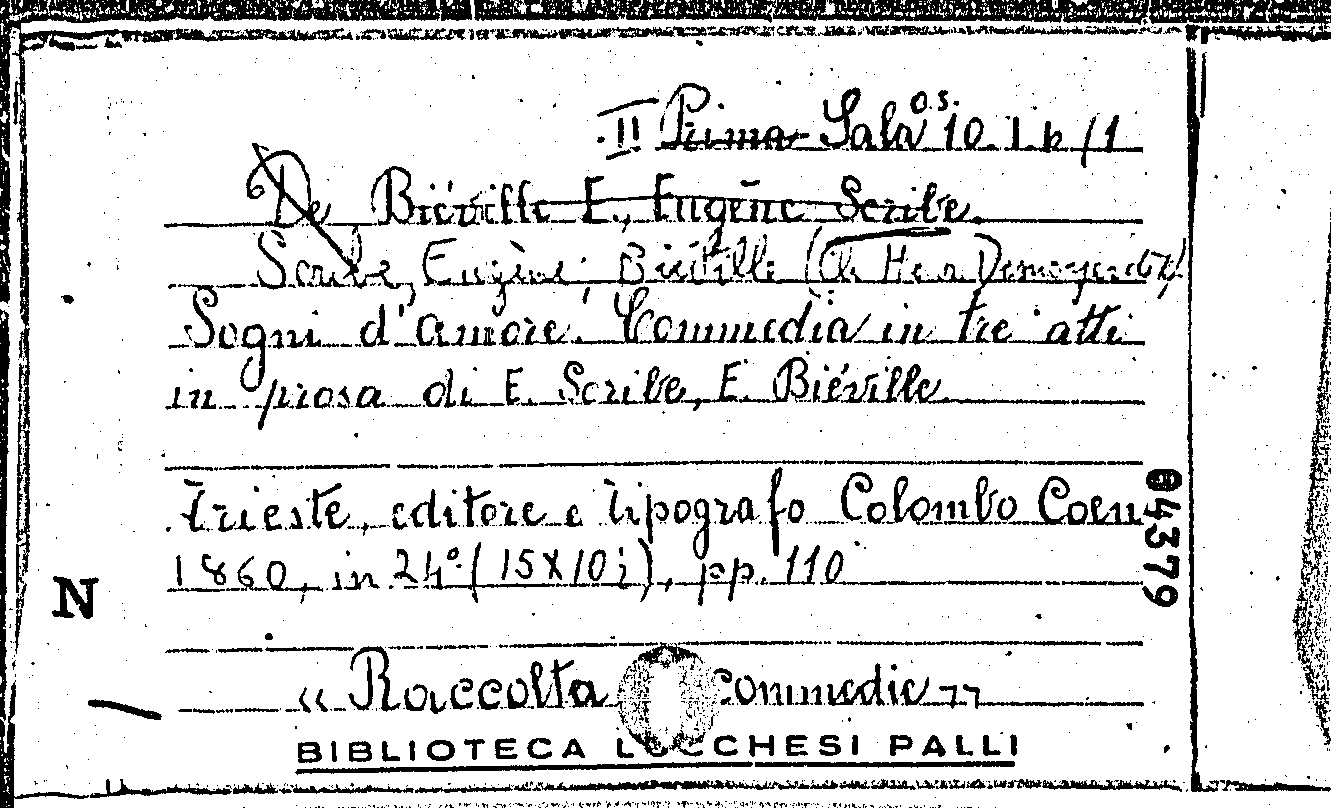 II Prima Sala o.s. 10. I. b /1
De Biéville E., Eugène Scribe.
Scribe, Eugène; Biéville
Sogni d'amore. Commedia in tre atti
in prosa di E. Scribe, E. Biéville
Trieste, editore e tipografo Colombo Coen
1860, in 24° (15x10), pp. 110
04379
N
"Raccolta Commedie"
BIBLIOTECA LUCCHESI PALLI